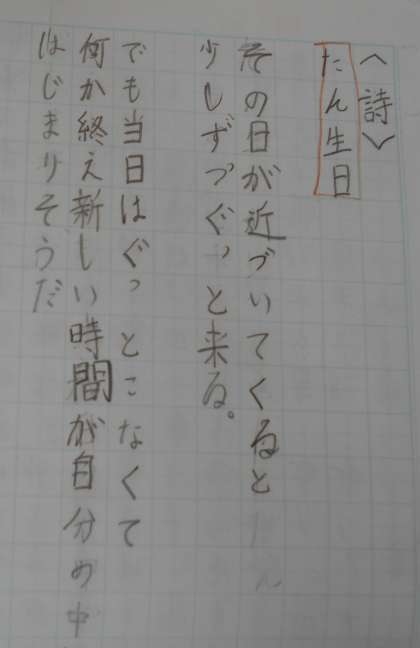 〈詩〉
たん生日
その日が近づいてくると
少しずつぐっと来る。
でも当日はぐっとこなくて
何か終え新しい時間が自分の中
はじまりそうだ